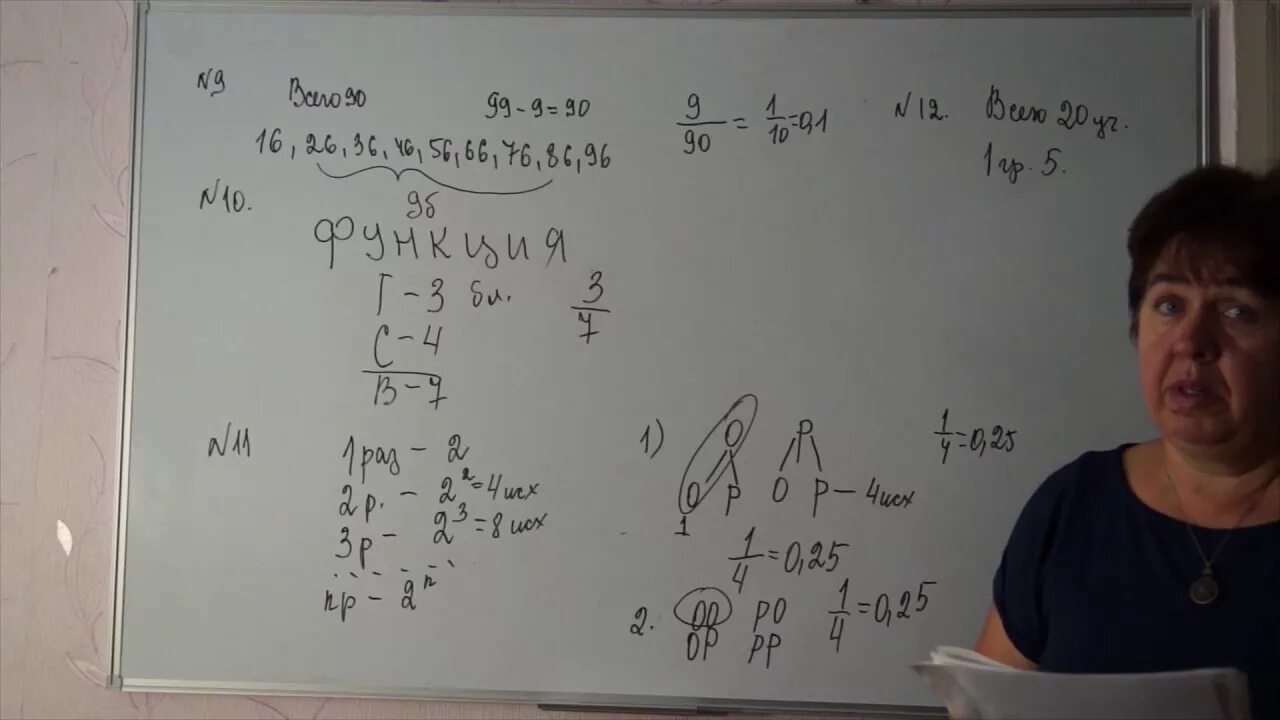 №9
Всего 90
99 - 9 = 90
9/90 = 1/10 = 0,1
16, 26, 36, 46, 56, 66, 76, 86, 96
9б
№10.
ФУНКЦИЯ
Г - 3 бл.
3/7
С - 4
В - 7
№11
1 раз - 2
2 р. - 2² = 4 исх
3 р - 2³ = 8 исх
n р - 2ⁿ
1)
О Р
О Р О Р - 4 исх
1
1/4 = 0,25
1/4 = 0,25
2. ОО РО 1/4 = 0,25
ОР РР
№12. Всего 20 уч.
1 гр. 5.